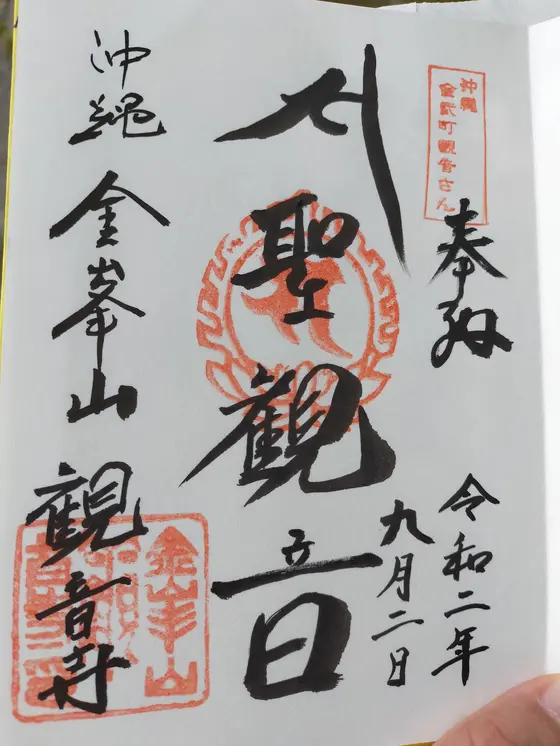 沖縄
金武町観音さん
奉納
令和二年
九月二日
聖観音
沖縄 金峯山 観音寺
金峯山